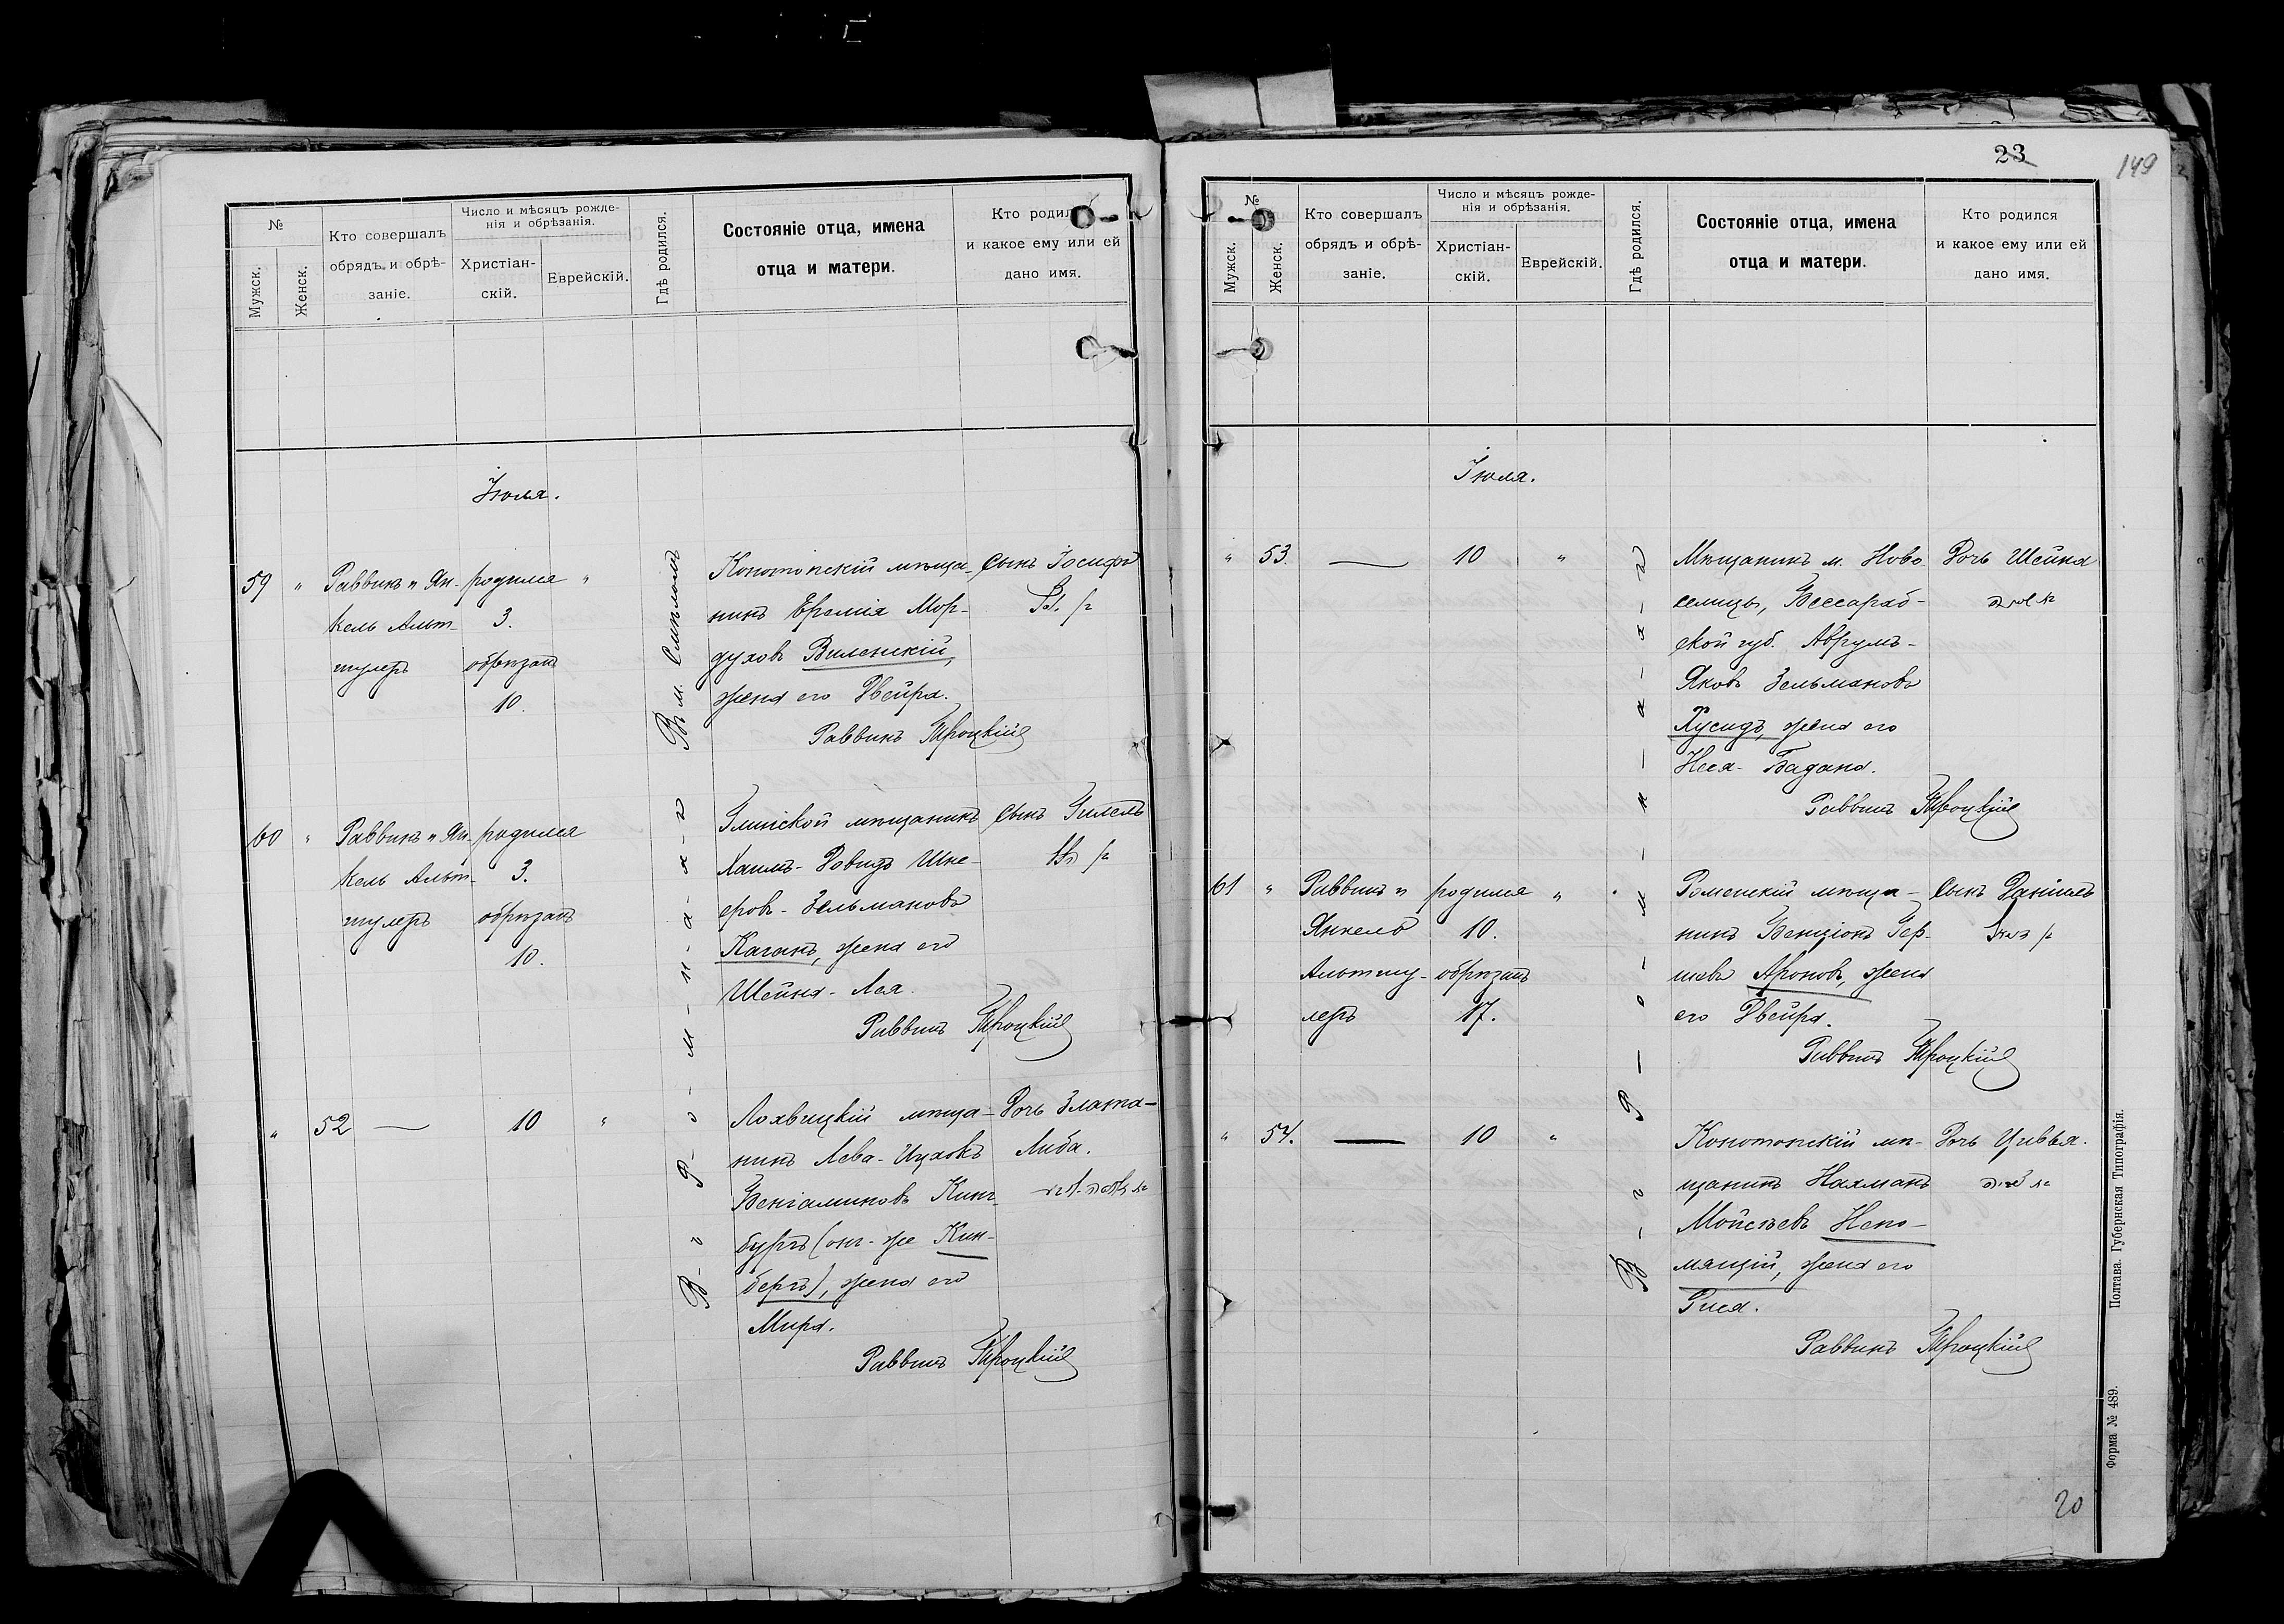 №
Мужск.
Женск.
Кто совершалъ
обрядъ и обрѣ-
заніе.
Число и мѣсяцъ рожде-
нія и обрѣзанія.
Христіан-
скій.
Еврейскій.
Гдѣ родился.
Состояніе отца, имена
отца и матери.
Кто родил
и какое ему или ей
дано имя.
Іюля.
59 " Раввинъ и Ян-
кель Альт-
шулеръ
родился "
3.
обрѣзанъ
10.
Въ м. Смѣломъ
Конотопскій мѣща-
нинъ Еремія Мор-
духовъ Виленскій,
жена его Двейра.
Раввинъ Троцкій
Сынъ Іосифъ
60 " Раввинъ и Ян-
кель Альт-
шулеръ
родился
3.
обрѣзанъ
10.
В-ъ Р-о-м-н-а-х-ъ
Глинской мѣщанинъ
Хаимъ-Довидъ Шне-
еровъ-Зельмановъ
Каганъ, жена его
Шейна-Лея.
Раввинъ Троцкій
Сынъ Гилель
" 52 — 10 "
Лохвицкій мѣща-
нинъ Лева-Ицхокъ
Веніаминовъ Кинз-
бургъ (онъ-же Кин-
бергъ), жена его
Мира.
Раввинъ Троцкій
Дочь Злата-
Либа.
23
149
№
Мужск.
Женск.
Кто совершалъ
обрядъ и обрѣ-
заніе.
Число и мѣсяцъ рожде-
нія и обрѣзанія.
Христіан-
скій.
Еврейскій.
Гдѣ родился.
Состояніе отца, имена
отца и матери.
Кто родился
и какое ему или ей
дано имя.
Іюля.
" 53. — 10 "
В-ъ Р-о-м-н-а-х-ъ
Мѣщанинъ м. Ново
селицы, Бессараб-
ской губ. Абрумъ-
Яковъ Зельмановъ
Хусидъ, жена его
Нися-Бадана.
Раввинъ Троцкій
Дочь Шейна
61 " Раввинъ и
Янкель
Альтшу-
леръ
родился "
10.
обрѣзанъ
17.
Роменскій мѣща-
нинъ Бенціонъ Гер-
шевъ Ароновъ, жена
его Двейра.
Раввинъ Троцкій
Сынъ Даніилъ
" 54. — 10 "
Конотопскій мѣ-
щанинъ Нахманъ
Мойсѣевъ Непо-
мящій, жена его
Рися.
Раввинъ Троцкій
Дочь Цивья.
Полтава. Губернская Типографія.
Форма № 489.
20